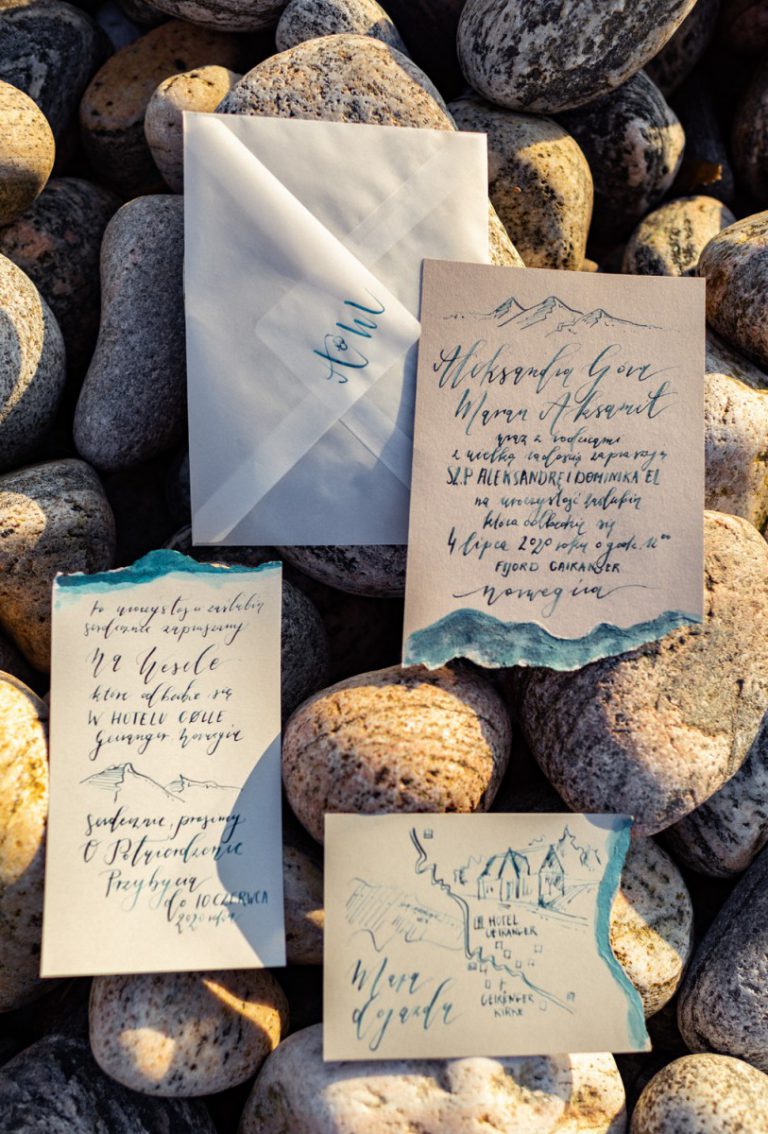 A&M
Aleksandra Góra
Maran Aksamit
wraz z rodzicami
z wielką radością zapraszają
SZ.P ALEKSANDRĘ I DOMINIKA EL
na uroczystość zaślubin
która odbędzie się
4 lipca 2020 roku o godz.
FIJORD GAIRANGER
Norwegia
Po uroczystości zaślubin
serdecznie zapraszamy
Na Wesele
które odbędzie się
W HOTELU
Geiranger, Norwegia
Serdecznie prosimy
O Potwierdzenie
Przybycia
do 10 CZERWCA
2020 roku
HOTEL
GEIRANGER
GEIRANGER
KIRKE
Mapa
dojazdu